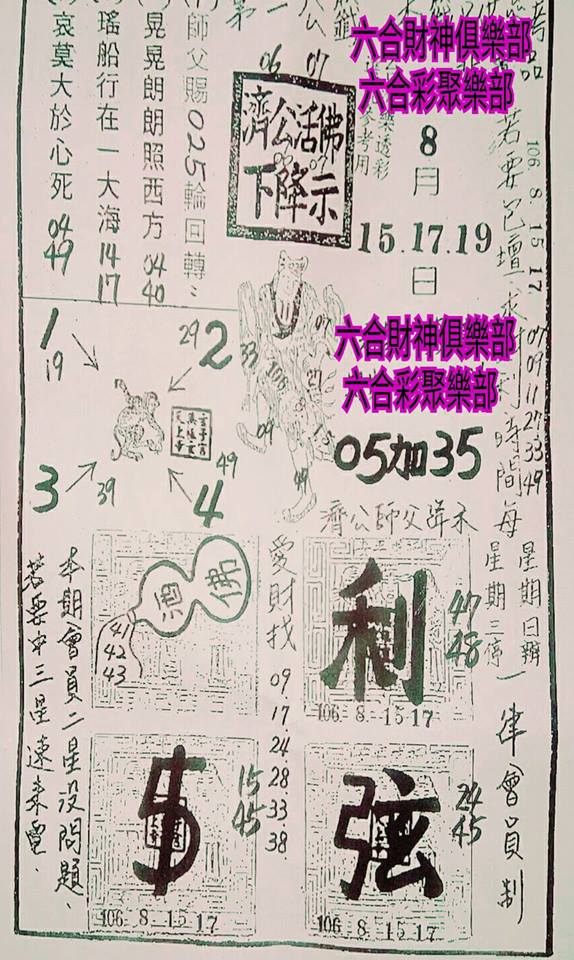 六合財神俱樂部
六合彩聚樂部
8
月
15.17.19
日
參考用
06 07
濟公活佛
下降示
師父賜025輪回轉:
晃晃朗朗照西方 04 40
瑤船行在一大海 14 17
哀莫大於心死 04 49
106 8 15 17
07 09 11 27 33 49
時間每
星期日辦
星期三停
一律會員制
六合財神俱樂部
六合彩聚樂部
05加35
1
19
29
2
3
39
4
49
33
07
09
49
濟公師父降示
佛
酒
41
42
43
愛財找 09 17 24 28 33 38
利
47
48
106. 8. 15 17
$
15
45
106. 8. 15 17
弦
24
45
106. 8. 15 17
本期會員二星没問題、
若要中三星速來電.